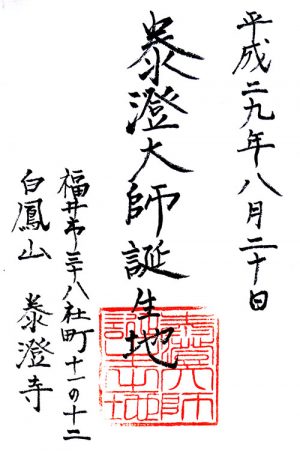 平成二九年八月二十日
泰澄大師誕生地
福井市三十八社町十一の十二
白鳳山 泰澄寺
泰澄大師
誕生地